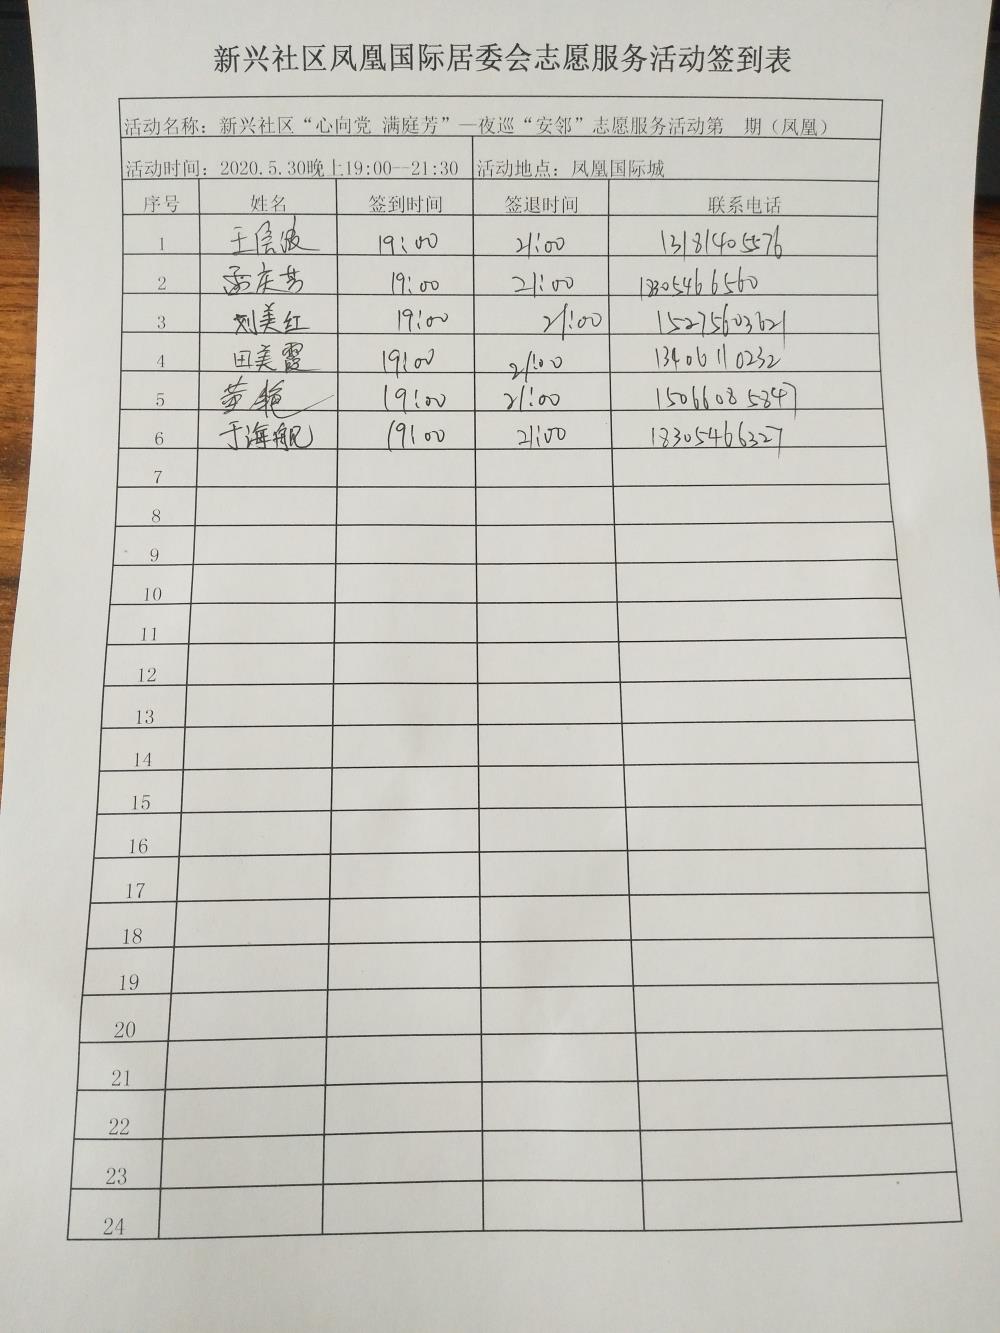 新兴社区凤凰国际居委会志愿服务活动签到表
活动名称：新兴社区“心向党 满庭芳”—夜巡“安邻”志愿服务活动第 期（凤凰）
活动时间：2020.5.30晚上19:00--21:30 活动地点：凤凰国际城
序号 姓名 签到时间 签退时间 联系电话
1 19:00 21:00 13181405576
2 孟庆芳 19:00 21:00 18305466560
3 刘美红 19:00 21:00 15275603621
4 田美霞 19:00 21:00 13406110232
5 黄艳 19:00 21:00 15066085847
6 于海舰 19:00 21:00 18305466327
7
8
9
10
11
12
13
14
15
16
17
18
19
20
21
22
23
24